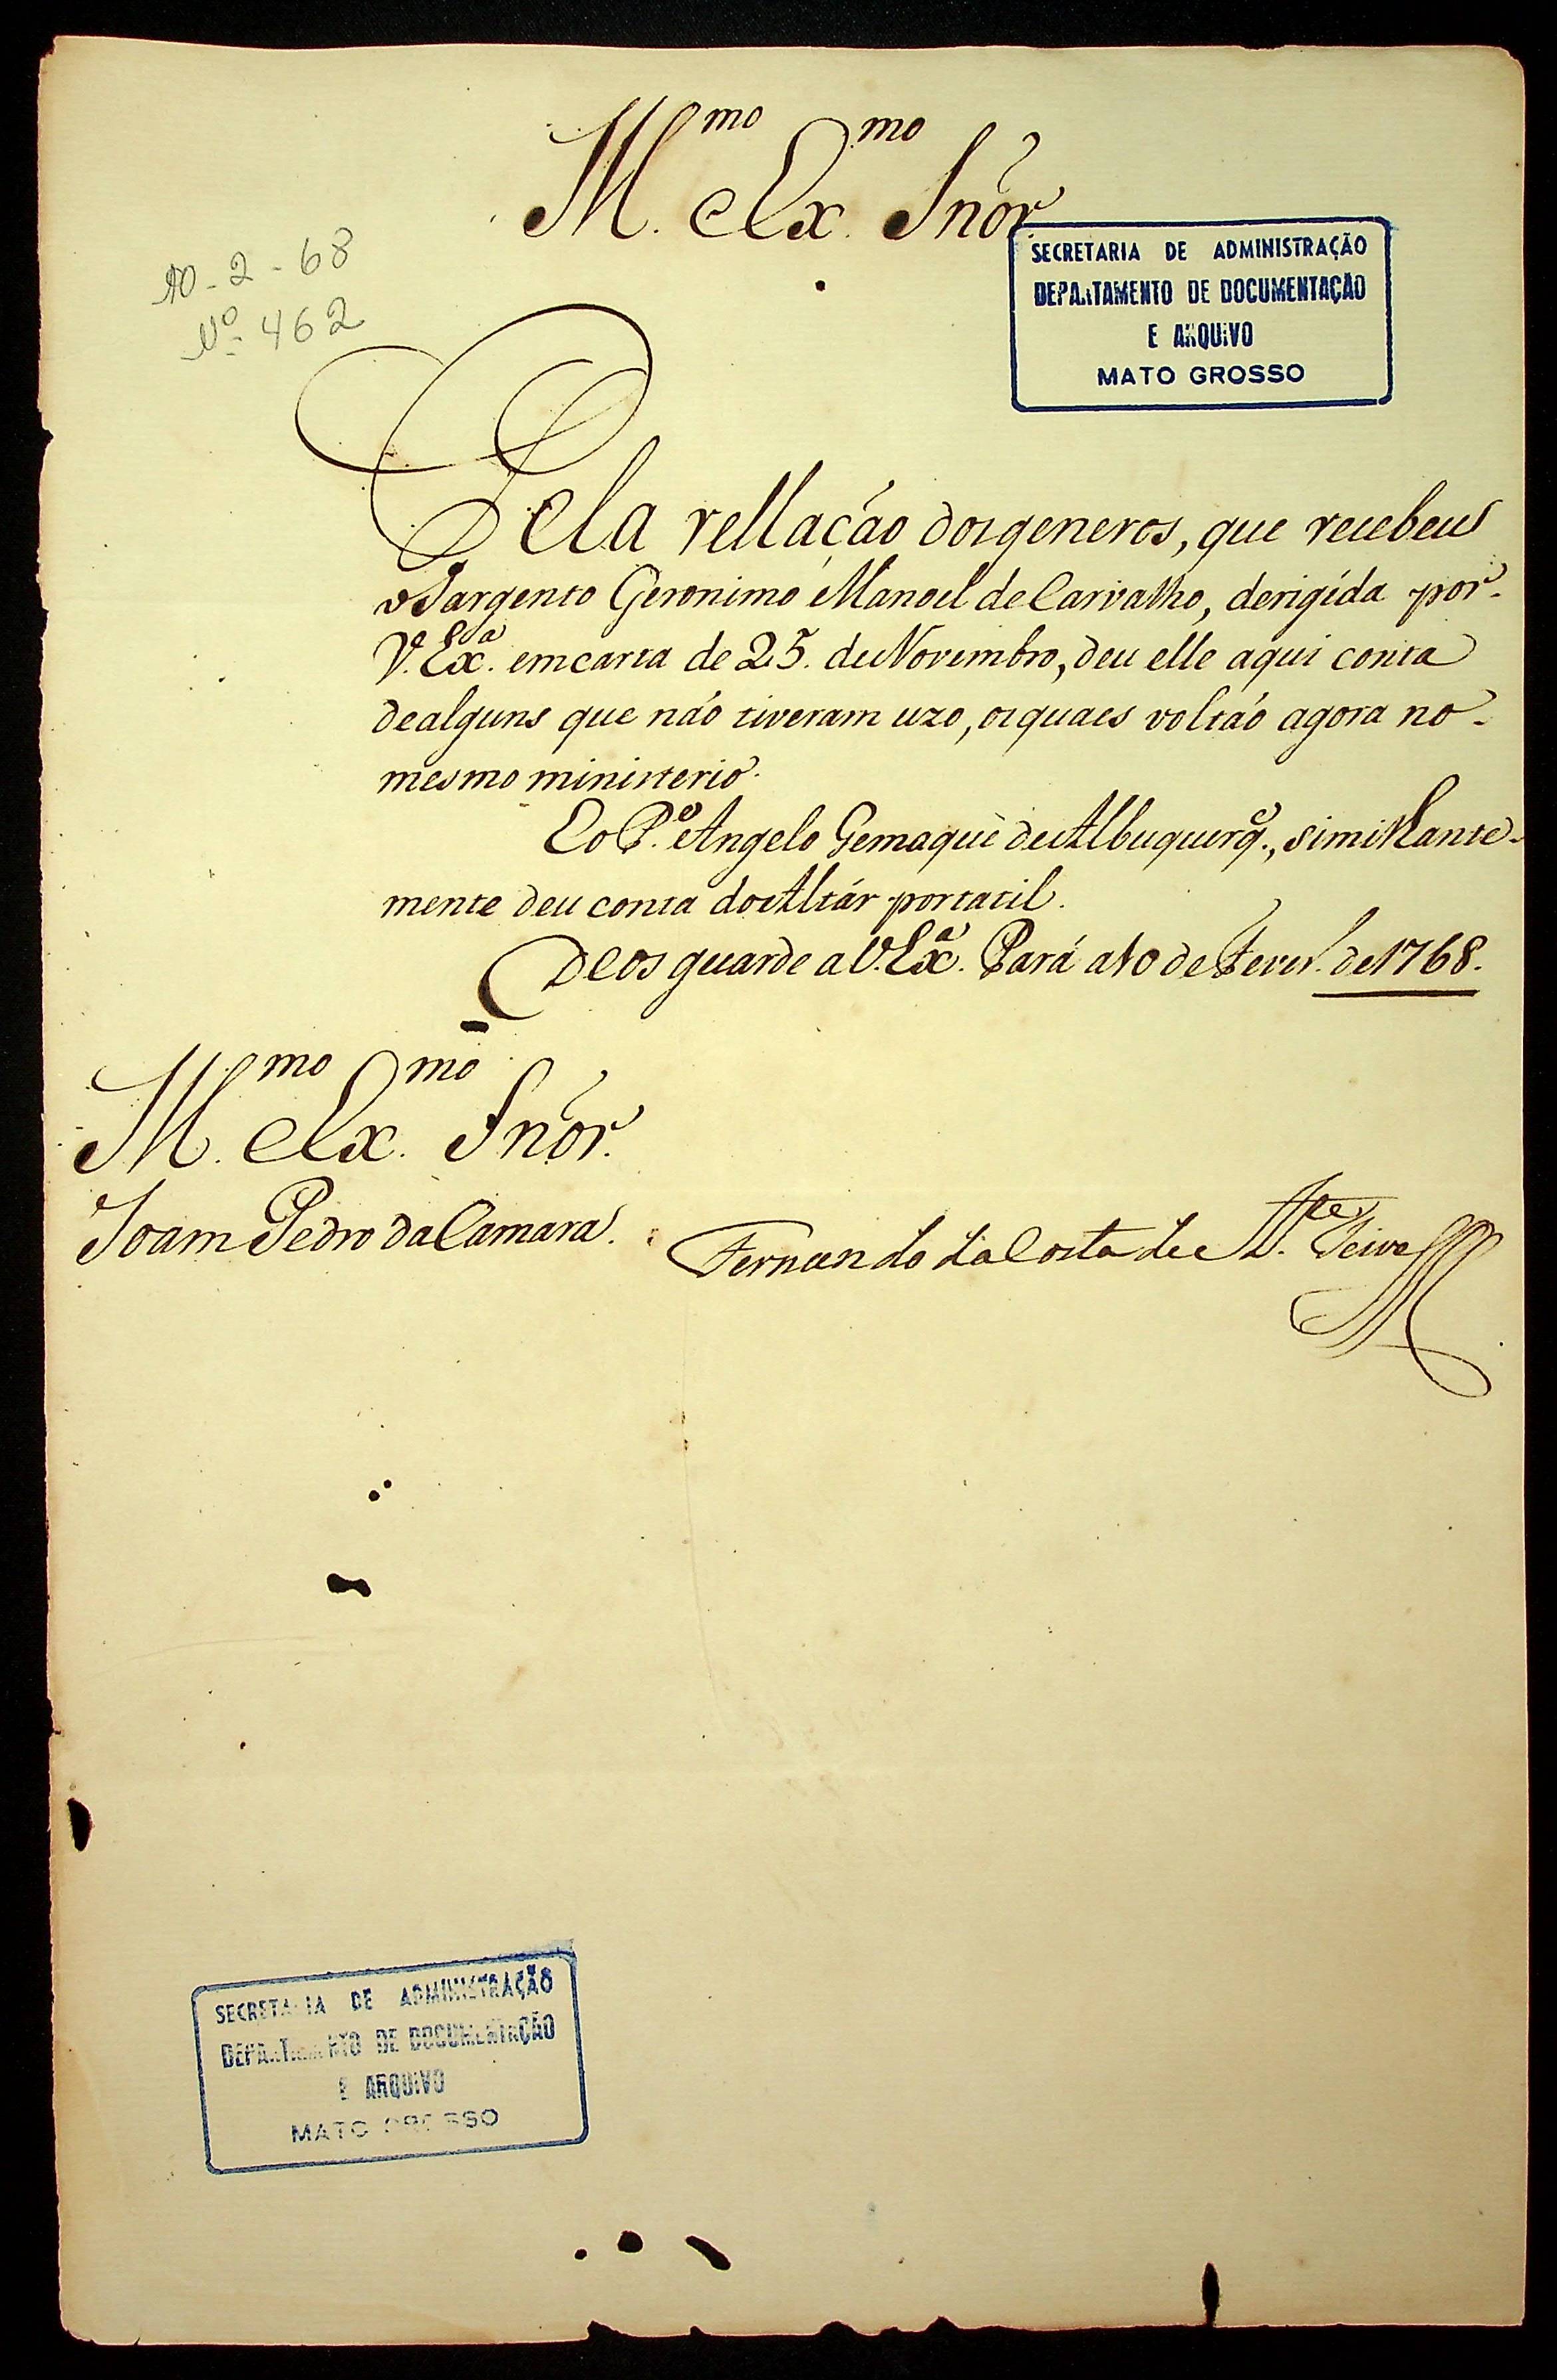 Ill.mo e Ex.mo Snõr
10-2-68
Nº 462
SECRETARIA DE ADMINISTRAÇÃO
DEPARTAMENTO DE DOCUMENTAÇÃO
E ARQUIVO
MATO GROSSO
Pela rellacáo dos generos, que recebeu
o Sargento Geronimo Manoel de Carvalho, derigida por
V. Exª. em carta de 25. de Novembro, deu elle aqui conta
de alguns que náo tiveram uzo, os quaes voltáo agora no
mesmo ministerio.
E o P.e Angelo Gemaque de Albuquerq.e, similhante-
mente deu conta do Altár portatil.
Deos guarde a V. Exª. Pará a 10 de Fever.º de 1768.
Ill.mo e Ex.mo Snõr.
Joam Pedro da Camara.
Fernando da Costa de At.e Teive
SECRETARIA DE ADMINISTRAÇÃO
DEPARTAMENTO DE DOCUMENTAÇÃO
E ARQUIVO
MATO GROSSO